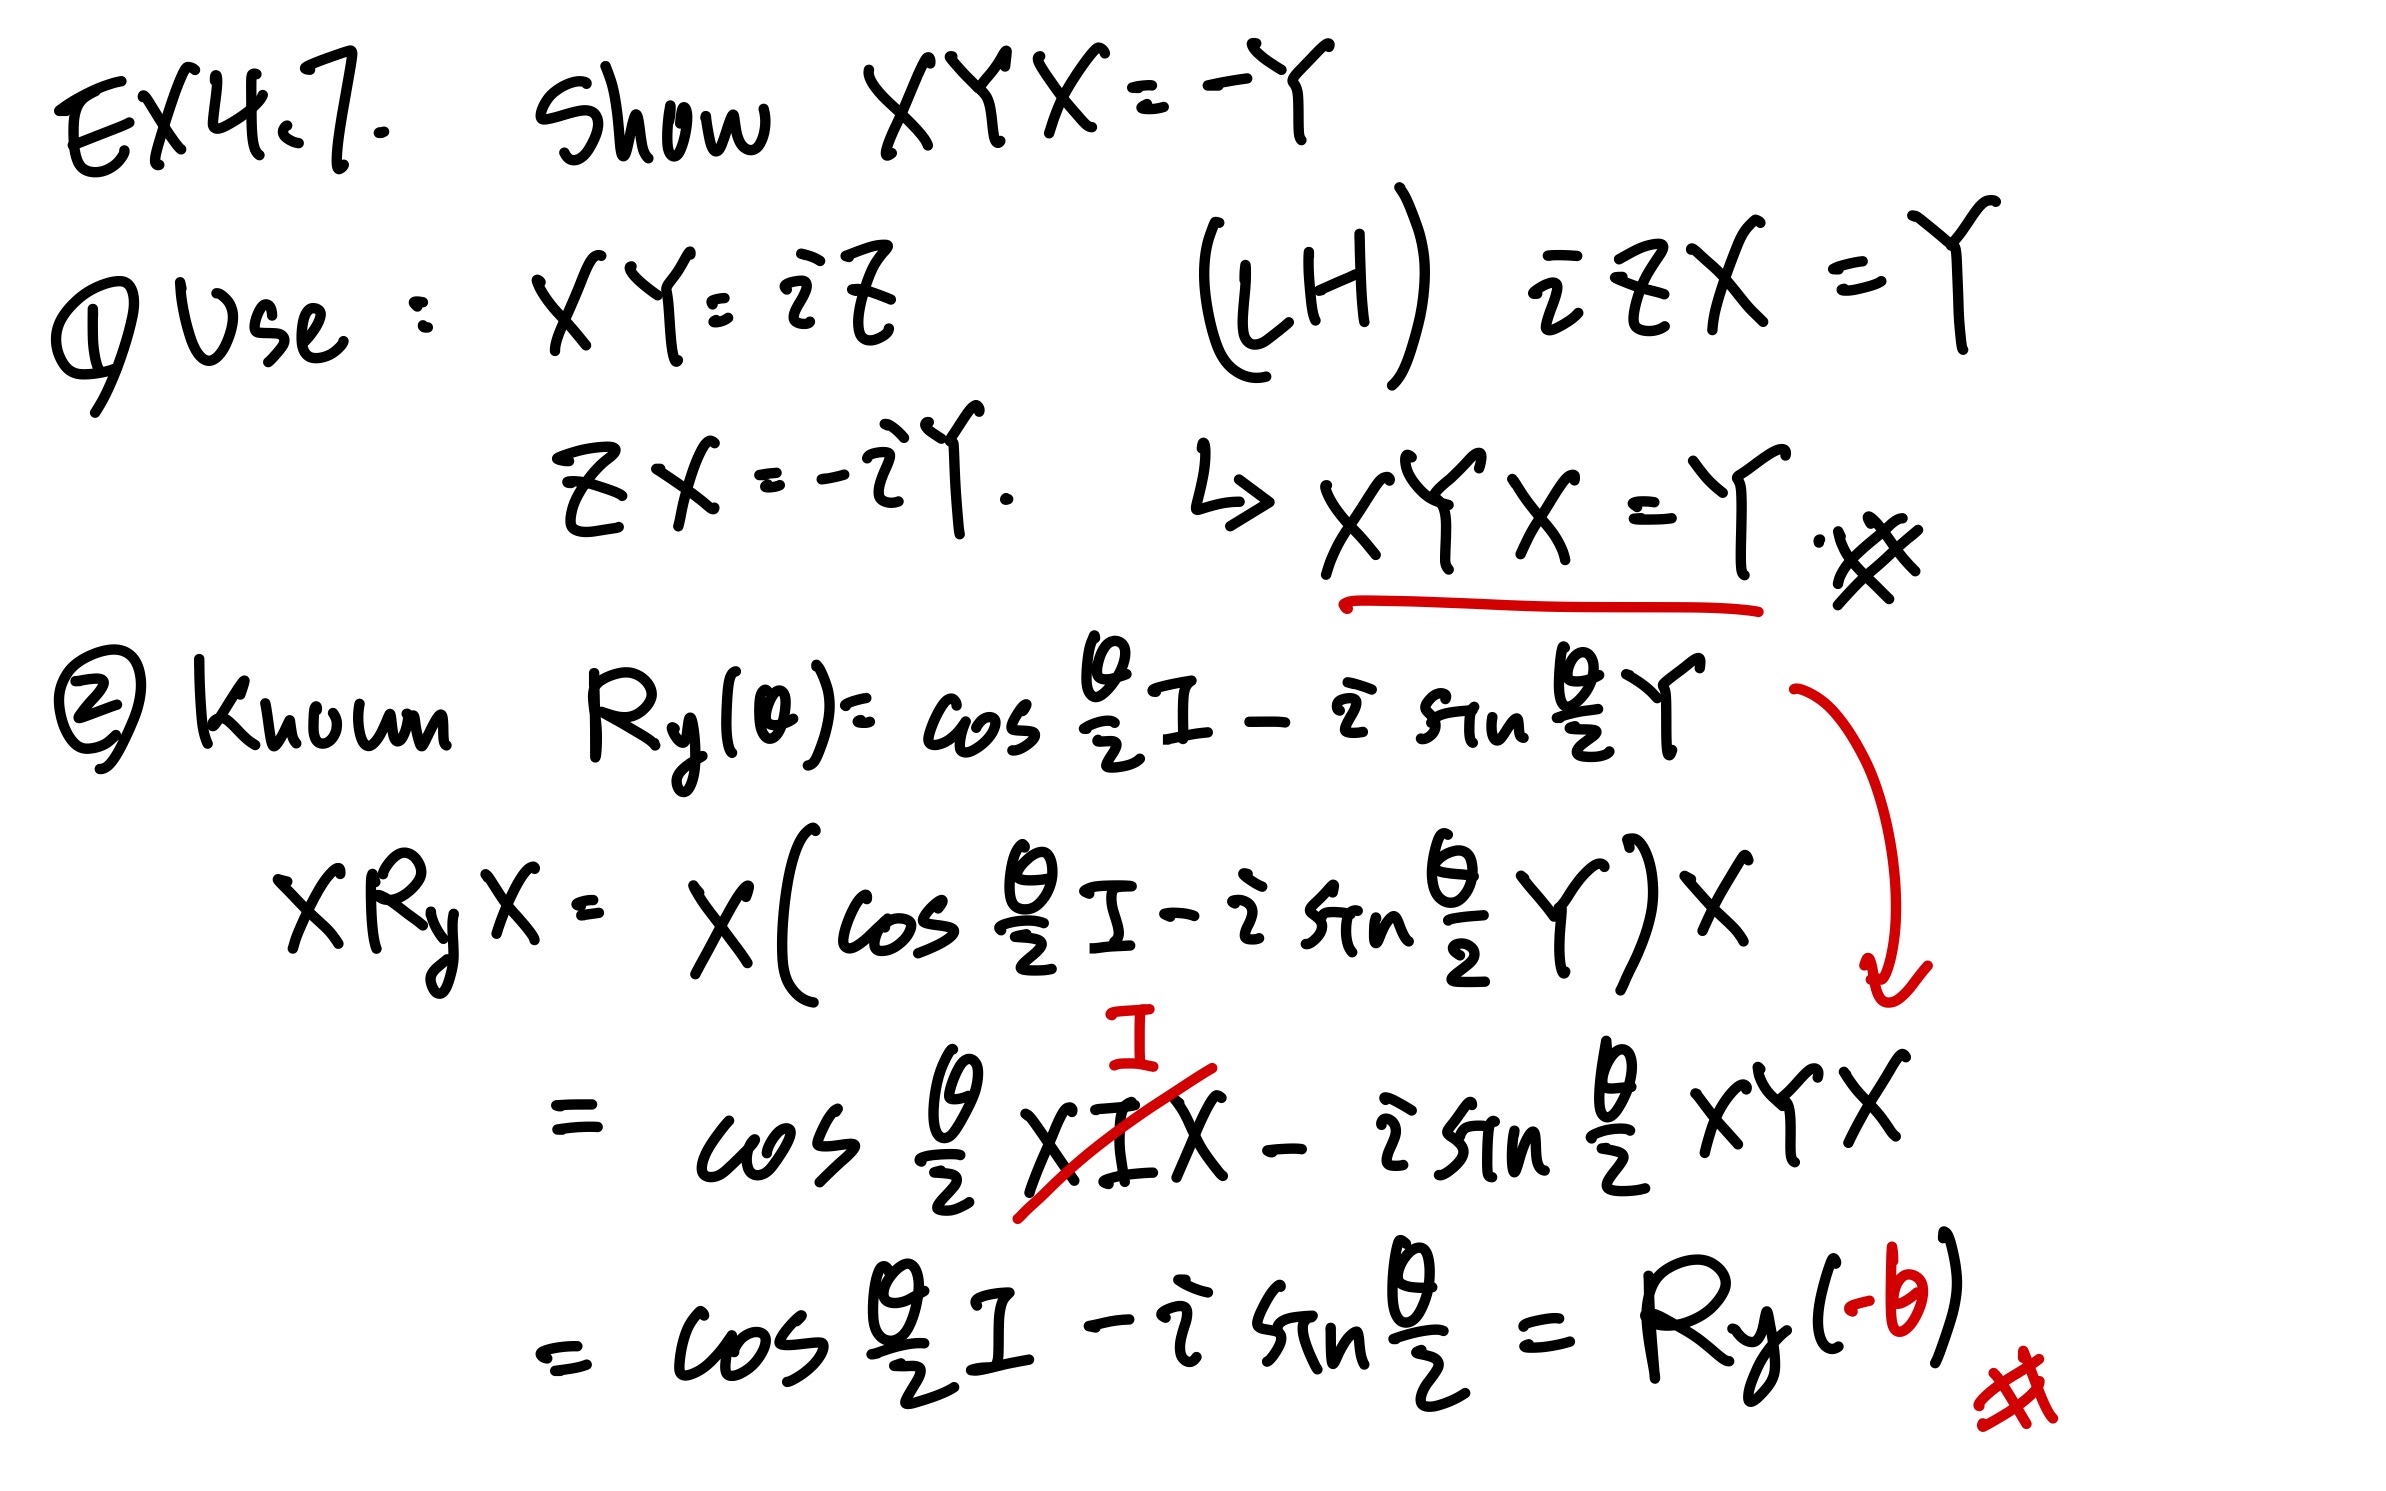 EX4.7. Show XYX = -Y
① Use : XY = iZ (LH) iZX = Y
ZX = -iY. ↳ XYX = Y . #
② Known Ry(θ) = cos θ/2 I - i sin θ/2 Y
XRyX = X(cos θ/2 I - i sin θ/2 Y)X
I
= cos θ/2 XIX - i sin θ/2 XYX
= cos θ/2 I - i sin θ/2 = Ry(-θ) #